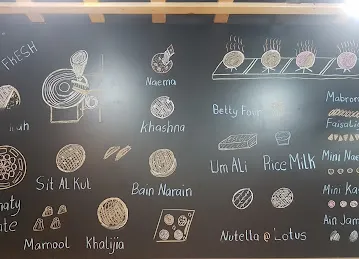 FRESH
Naema
Khashna
Betty Four
Mabrom
Sit Al Kul
Bain Narain
Um Ali
Rice Milk
Mini Na
Mini Ka
Mamool
Khalijia
Nutella @ Lotus
Ain Jam